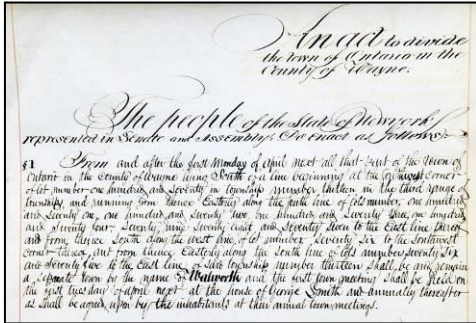 An act to divide
the town of Ontario in the
County of Wayne.
The people of the State of New York
represented in Senate and Assembly, Do enact as follows:
§1 From and after the first Monday of April next all that part of the town of
Ontario in the County of Wayne lying South of a line beginning at the Northwest corner
of lot number one hundred and seventy in township number thirteen in the third range of
townships, and running from thence Easterly along the north line of lots number, one hundred
and seventy one, one hundred and seventy two, one hundred and seventy three, one hundred
and seventy four, seventy nine, seventy eight and seventy seven to the East line thereof
and from thence South along the west line of lot number seventy six to the Southwest
corner thereof, and from thence Easterly along the South line of lots numbers seventy six
and seventy five to the East line of said township number thirteen shall be and remain
a separate town by the name of Walworth and the first town meeting shall be held on
the first tuesday of april next at the house of George Smith and annually thereafter
as shall be agreed upon by the inhabitants at their annual town meetings.